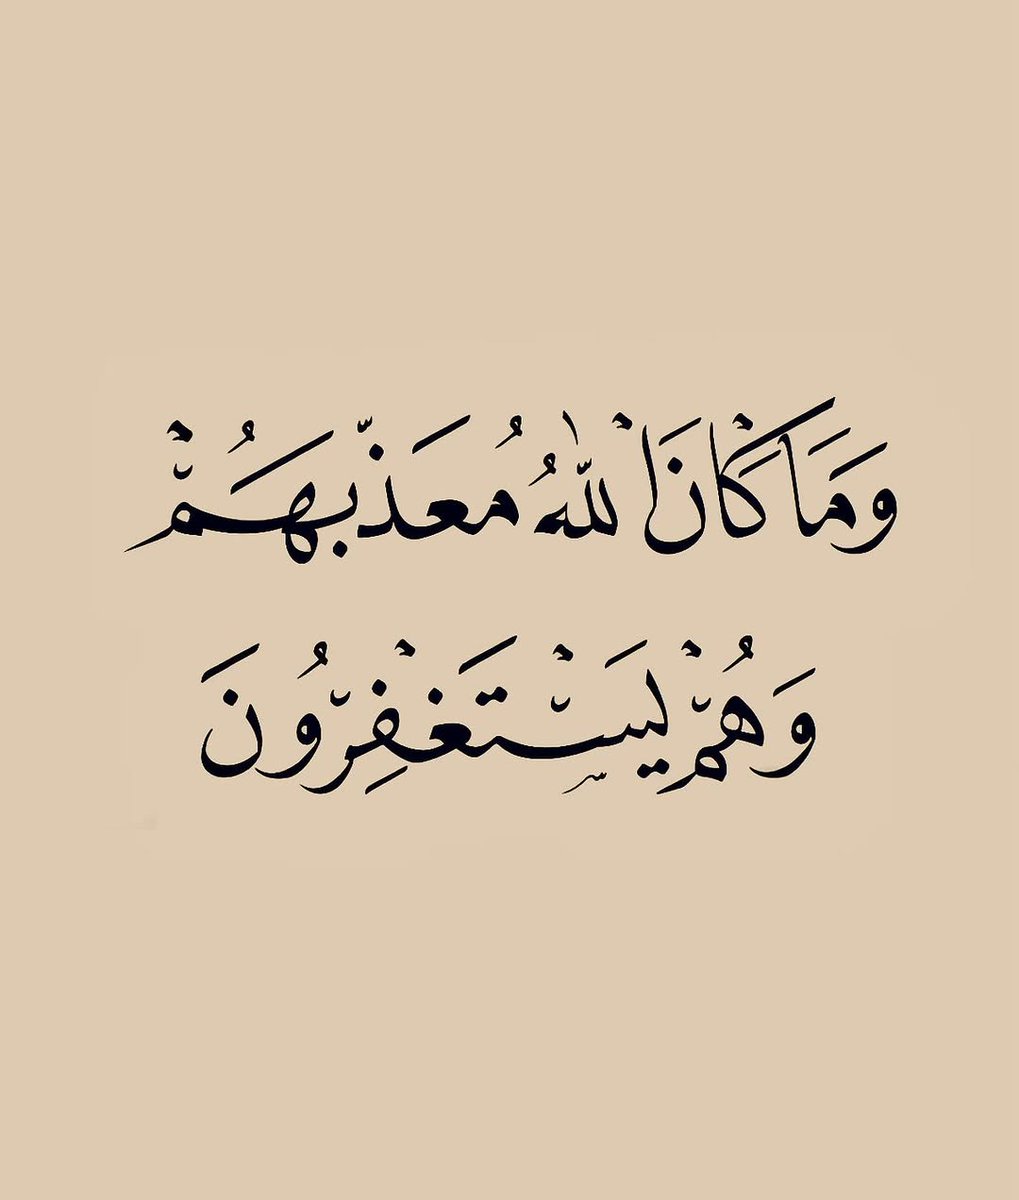 وَمَا كَانَ اللهُ مُعَذّبَهُمْ
وَهُمْ يَسْتَغْفِرُونَ